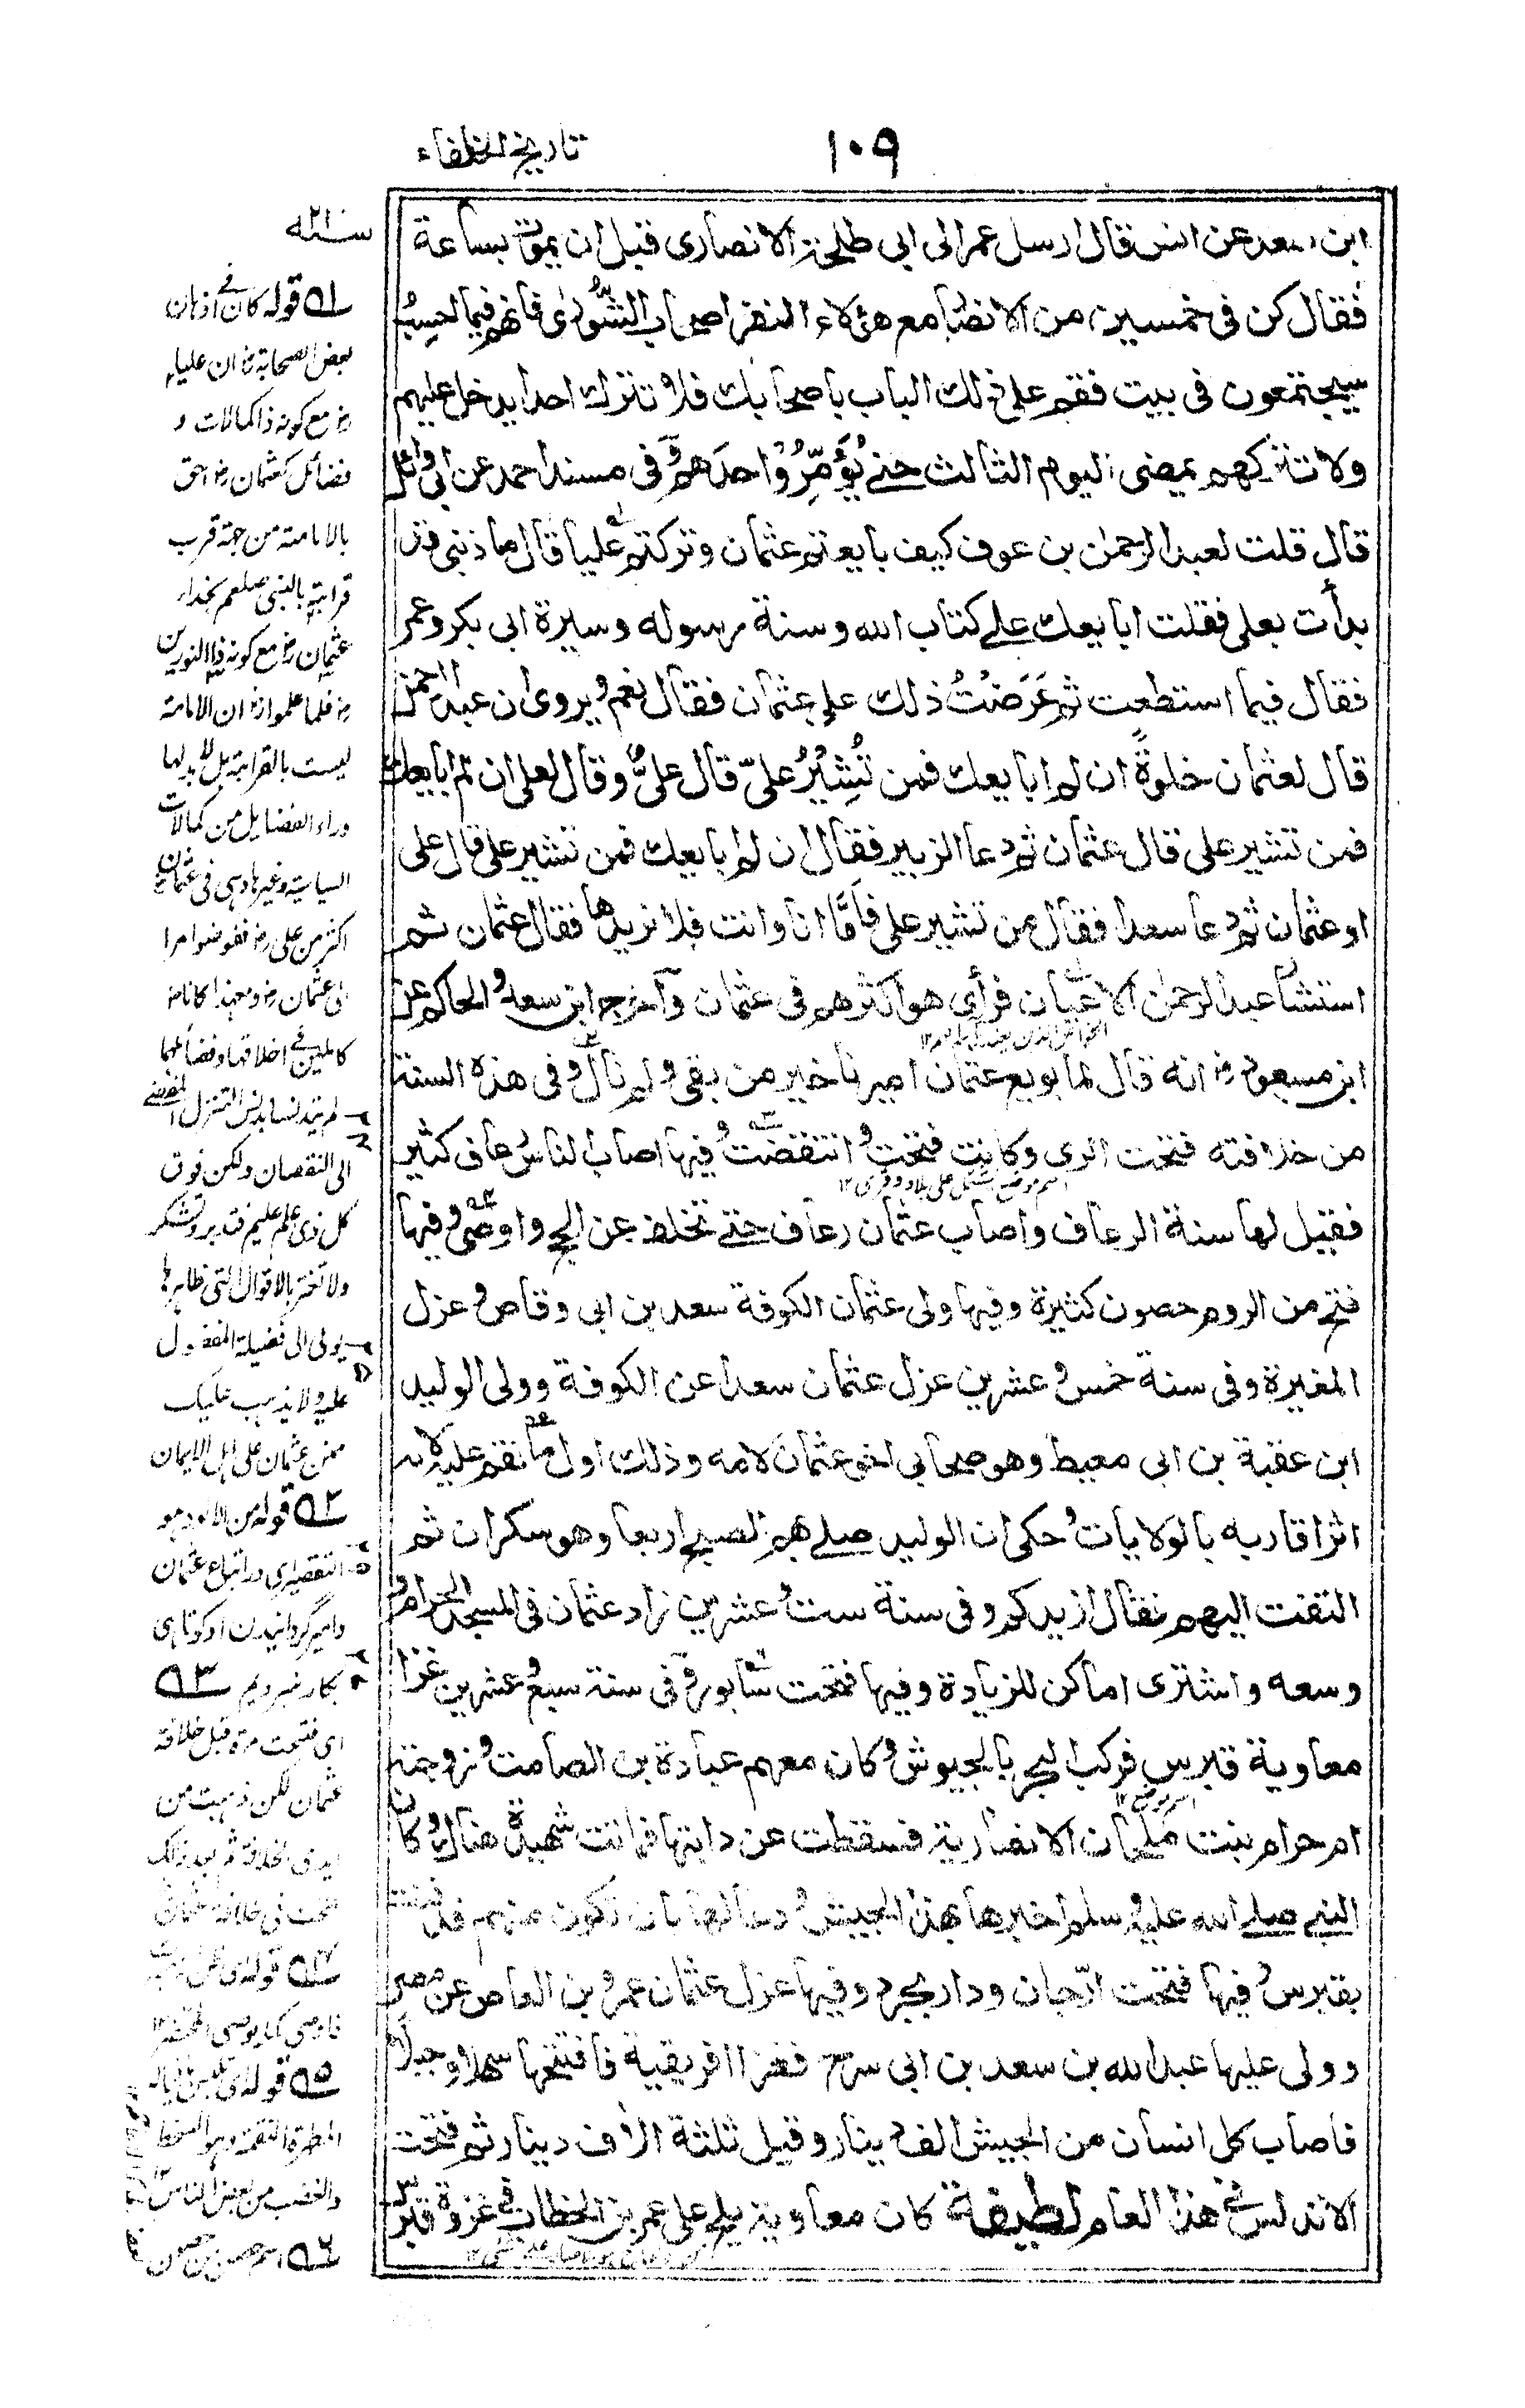 ١٠٩
تاريخ الخلفاء
ابن سعد عن انس قال ارسل عمر الى ابي طلحة الانصارى قبل ان يموت بساعة
فقال كن فى خمسين من الانصا مع هؤلاء النفر اصحاب الشورى فانهم فيما احسب
سيجتمعون فى بيت فقم على ذلك الباب باصحابك فلا تترك احدا يدخل عليهم
ولا تتركهم يمضى اليوم الثالث حتى يؤمِّرُوا احدَهم وَفى مسند احمد عن ابى وائل
قال قلت لعبد الرحمٰن بن عوف كيف بايعتم عثمان وتركتم عليا قال ما ذنبى قد
بدأت بعلى فقلت ابايعك على كتاب الله وسنة رسوله وسيرة ابى بكر وعمر
فقال فيما استطعت ثم عَرَضْتُ ذلك على عثمان فقال نعم ويروى ان عبد الرحمٰن
قال لعثمان خلوةً ان لم ابايعك فمن تُشِيْرُ علىّ قال علىٌّ وقال لعلى ان لم ابايعك
فمن تشير على قال عثمان ثم دعا الزبير فقال ان لم ابايعك فمن تشير على قال على
او عثمان ثم دعا سعدا فقال من تشير على فاَمَّا انا وانت فلا نريدها فقال عثمان ثم
استشا عبد الرحمٰن الاعيان فرأى هوا اكثرهم فى عثمان وآخرج ابن سعد والحاكم عن
ابن مسعود رض انه قال لما بويع عثمان امرنا خير من بقى ولم نال وفى هذه السنة
من خلافته فتحت الرى وكانت فتحت وانتقضت وفيها اصاب الناس رعاف كثير
اسم موضع مشتمل على بلاد وقرى ١٢
فقيل لها سنة الرعاف واصاب عثمان رعاف حتى تخلف عن الحج واوصى وفيها
فتح من الروم حصون كثيرة وفيها ولى عثمان الكوفة سعد بن ابى وقاص وعزل
المغيرة وفى سنة خمس وعشرين عزل عثمان سعدا عن الكوفة وولى الوليد
ابن عقبة بن ابى معيط وهو صحابى اخو عثمان لامه وذلك اول ما نقم عليه لانه
اثر اقاربه بالولايات وحكى ان الوليد صلى بهم الصبح اربعا وهو سكران ثم
التفت اليهم فقال ازيدكم وفى سنة ست وعشرين زاد عثمان فى المسجد الحرام و
وسعه واشترى اماكن للزيادة وفيها فتحت سابور وَفى سنة سبع وعشرين غزا
معاوية قبرس فركب البحر بالجيوش وكان معهم عبادة بن الصامت وزوجته
ام حرام بنت ملحان الانصارية فسقطت عن دابتها فماتت شهيدة هناك وكان
النبى صلى الله عليه وسلم اخبرها بهذا الجيش ودعا لها بان تكون منهم فدفنت
بقبرس وفيها فتحت ارّجان ودارابجرد وفيها عزل عثمان عمرو بن العاص عن مصر
وولى عليها عبد الله بن سعد بن ابى سرح فغزا افريقية فافتتحها سهلا وجبلًا
فاصاب كل انسان من الجيش الف دينار وقيل ثلثة الاف دينار ثم فتحت
الاندلس فى هذا العام لطيفة كان معاوية يلح على عمر بن الخطاب فى غزوة قبرس
سنة ٢١ه
١ه قوله كان فى اذهان
بعض الصحابة رض ان عليا
رض مع كونه ذا كمالات و
فضائل كعثمان رض احق
بالامامة من جهة قرب
قرابته بالنبى صلعم بخلاف
عثمان رض مع كونه ذا النورين
رض فلما علموا ان الامامة
ليست بالقرابة بل لا بد لها
وراء الفضايل من كمالات
السياسة وغيرها وهى فى عثمان
اكثر من على رض ففوضوا امرا
الى عثمان رض ومعهذا كانا
كاملين فى اخلاقهما وفضائلهما
الى النقصان ولكن فوق
كل ذى علم عليم فتدبر وتشكر
ولا تغتر بالاقوال التى ظاهرها
يولى الى فضيلة المفضول
عليه ولا يذهب عليك
ممنن عثمان على اهل الايمان
٢ه قوله من الالو وهو
التقصير اى در اتباع عثمان
وامير گردانيدن او كوتاهى
بكار نبرديم ٣ه
اى فتحت مرة قبل خلافة
عثمان لكن ذهبت من
ايدى الخلافة ثم بعد ذلك
فتحت فى خلافة عثمان
٥ه قوله
والغضب من بعض الناس ١٢
٦ه اسم حصن من حصون